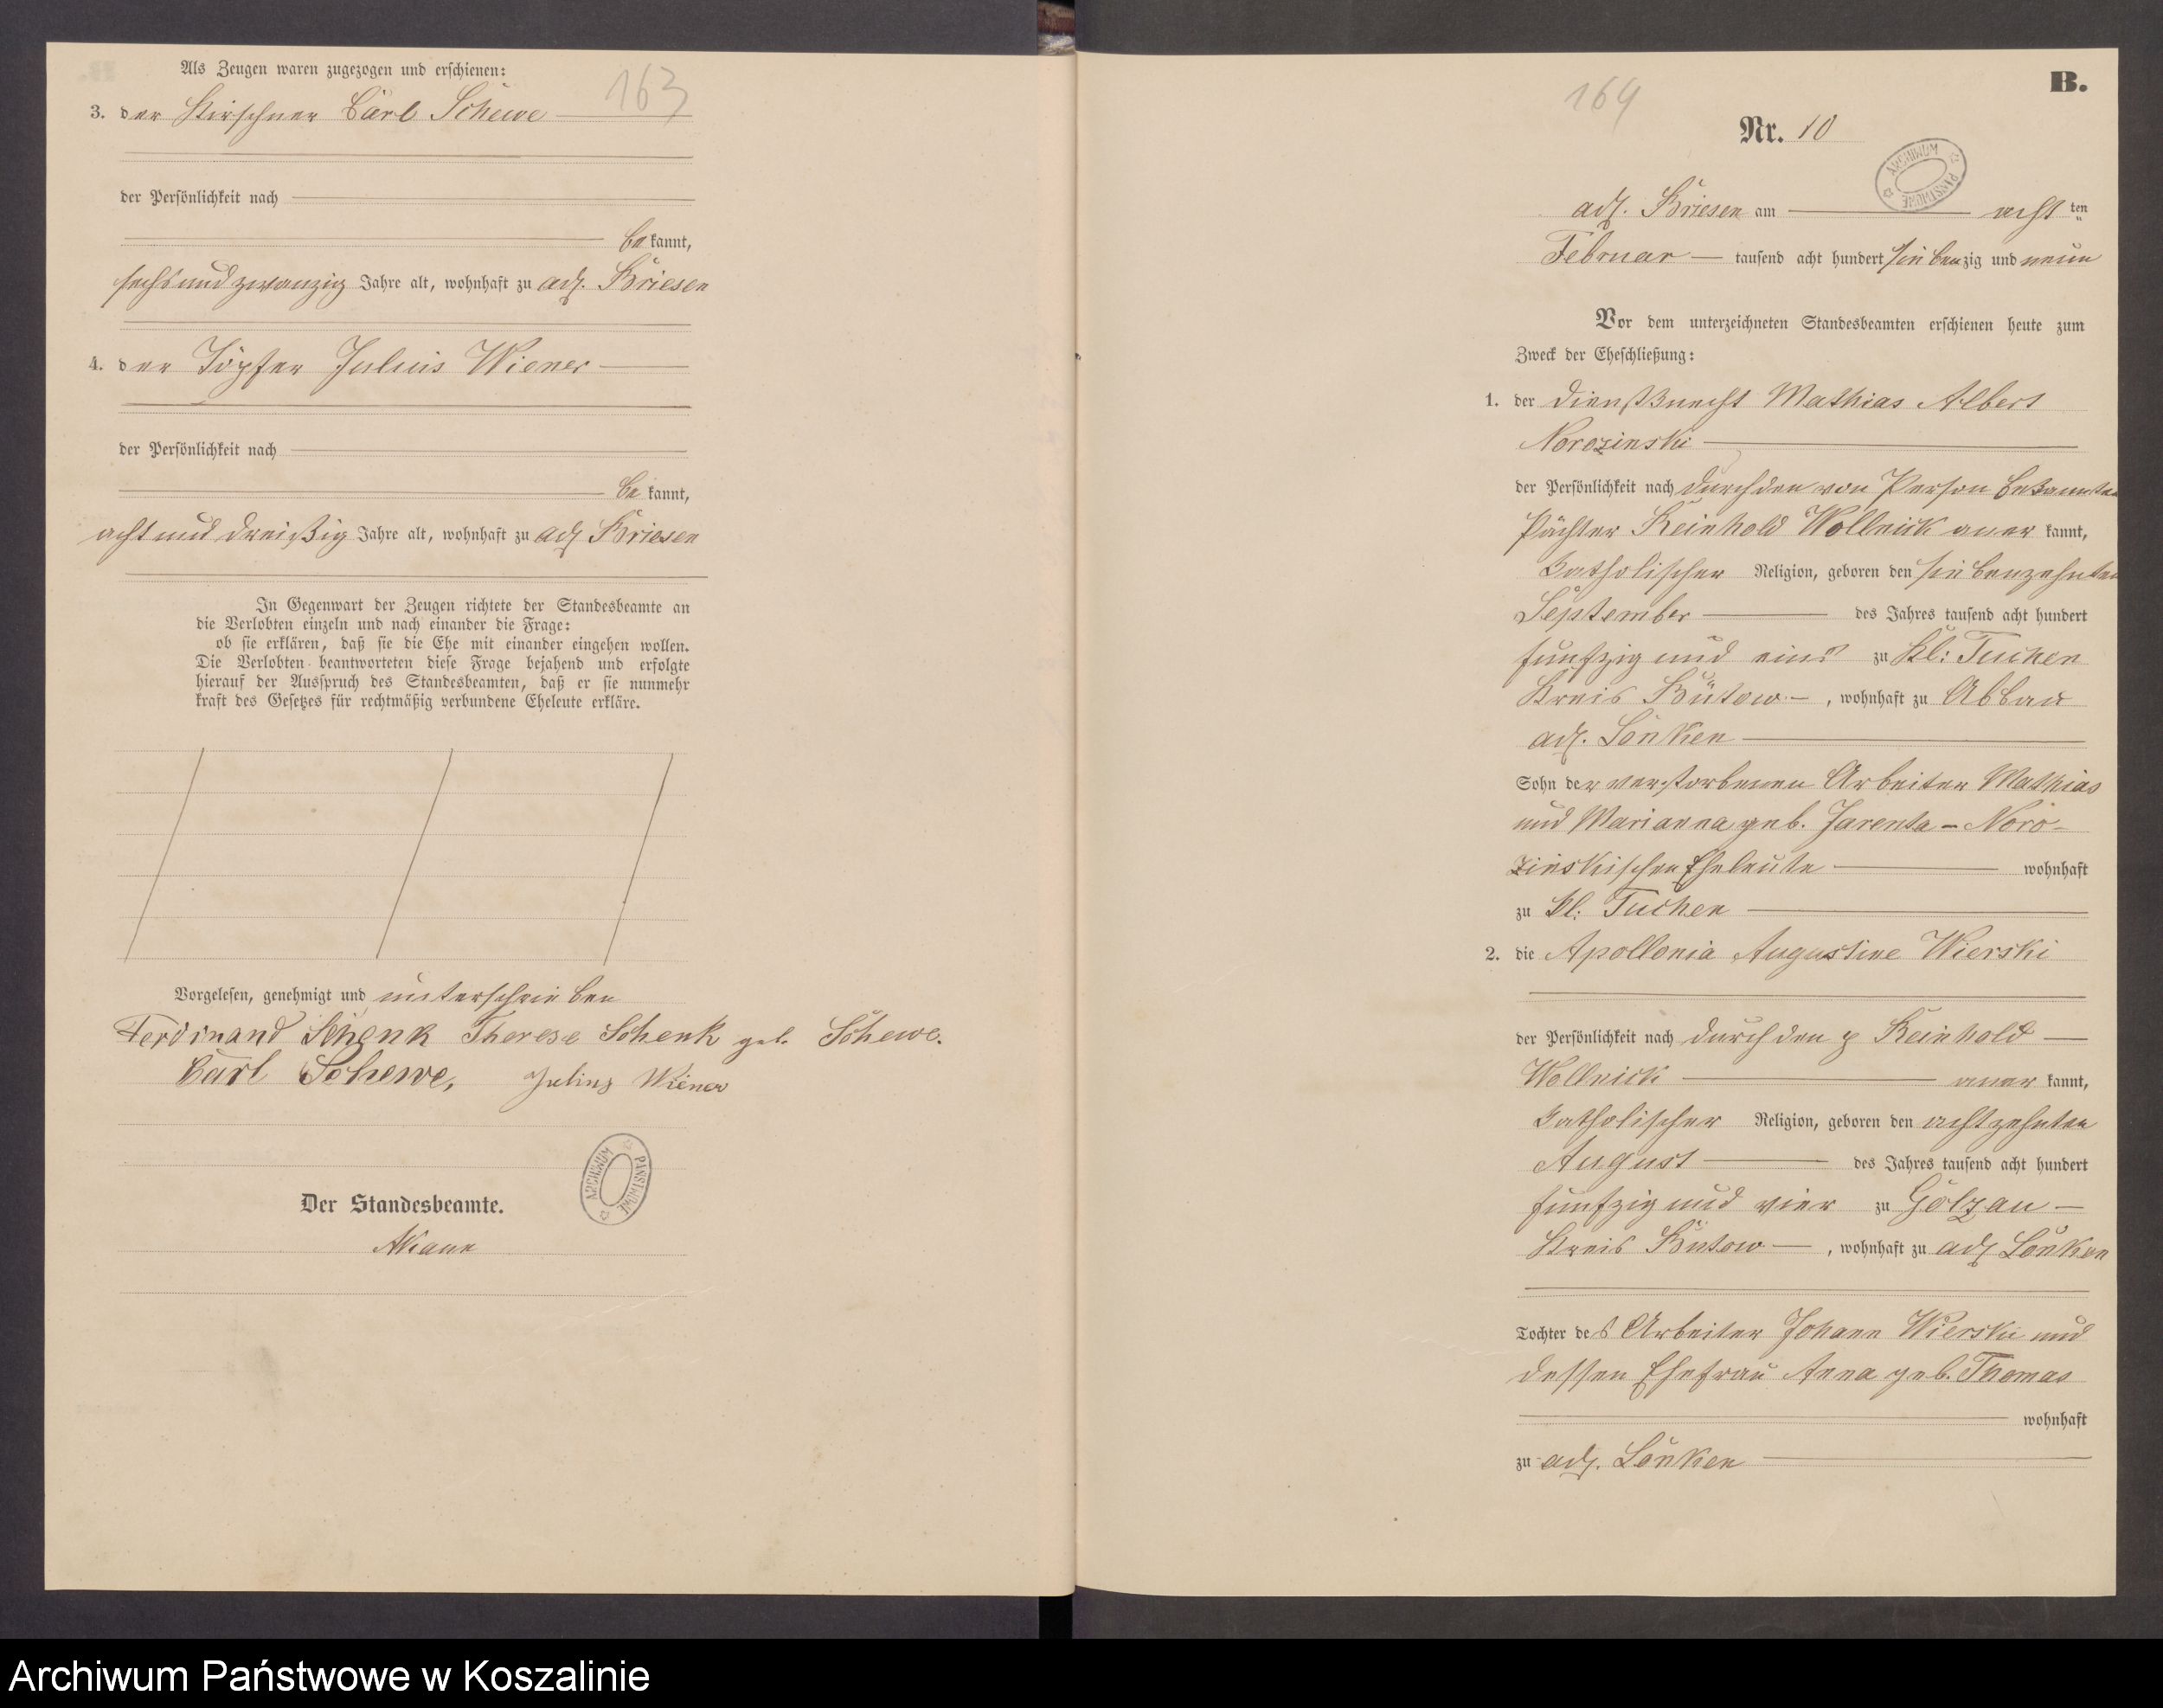 Als Zeugen waren zugezogen und erschienen:
163
3. der Kirschner Carl Schewe
der Persönlichkeit nach
bekannt,
sechsundzwanzig Jahre alt, wohnhaft zu adl. Briesen
4. der Töpfer Julius Wiener
der Persönlichkeit nach
bekannt,
acht und dreißig Jahre alt, wohnhaft zu adl Briesen
In Gegenwart der Zeugen richtete der Standesbeamte an
die Verlobten einzeln und nach einander die Frage:
ob sie erklären, daß sie die Ehe mit einander eingehen wollen.
Die Verlobten beantworteten diese Frage bejahend und erfolgte
hierauf der Ausspruch des Standesbeamten, daß er sie nunmehr
kraft des Gesetzes für rechtmäßig verbundene Eheleute erkläre.
Vorgelesen, genehmigt und unterschrieben
Ferdinand Schenk Therese Schenk geb. Schewe.
Carl Schewe, Julius Wiener
ARCHIWUM PAŃSTWOWE
Der Standesbeamte.
B.
164
Nr. 10
ARCHIWUM PAŃSTWOWE
adl. Briesen am acht ten
Februar tausend acht hundert siebenzig und neun
Vor dem unterzeichneten Standesbeamten erschienen heute zum
Zweck der Eheschließung:
1. der Dienstknecht Mathias Albert
Norozinski
der Persönlichkeit nach durch den von Person bekannten
Pächter Reinhold Wollnick aner kannt,
katholischer Religion, geboren den siebenzehnten
September des Jahres tausend acht hundert
funfzig und eins zu Kl: Tuchen
Kreis Bütow, wohnhaft zu Abbau
adl. Lonken
Sohn der verstorbenen Arbeiter Mathias
und Marianna geb. Jarenta - Noro-
zinskischen Eheleute wohnhaft
zu Kl: Tuchen
2. die Apollonia Augustine Wierski
der Persönlichkeit nach durch den p Reinhold
Wollnick aner kannt,
katholischer Religion, geboren den achtzehnten
August des Jahres tausend acht hundert
funfzig und vier zu Gölzau
Kreis Butow, wohnhaft zu adl Lonken
Tochter des Arbeiter Johann Wierski und
dessen Ehefrau Anna geb. Thomas
wohnhaft
zu adl. Lonken
Archiwum Państwowe w Koszalinie